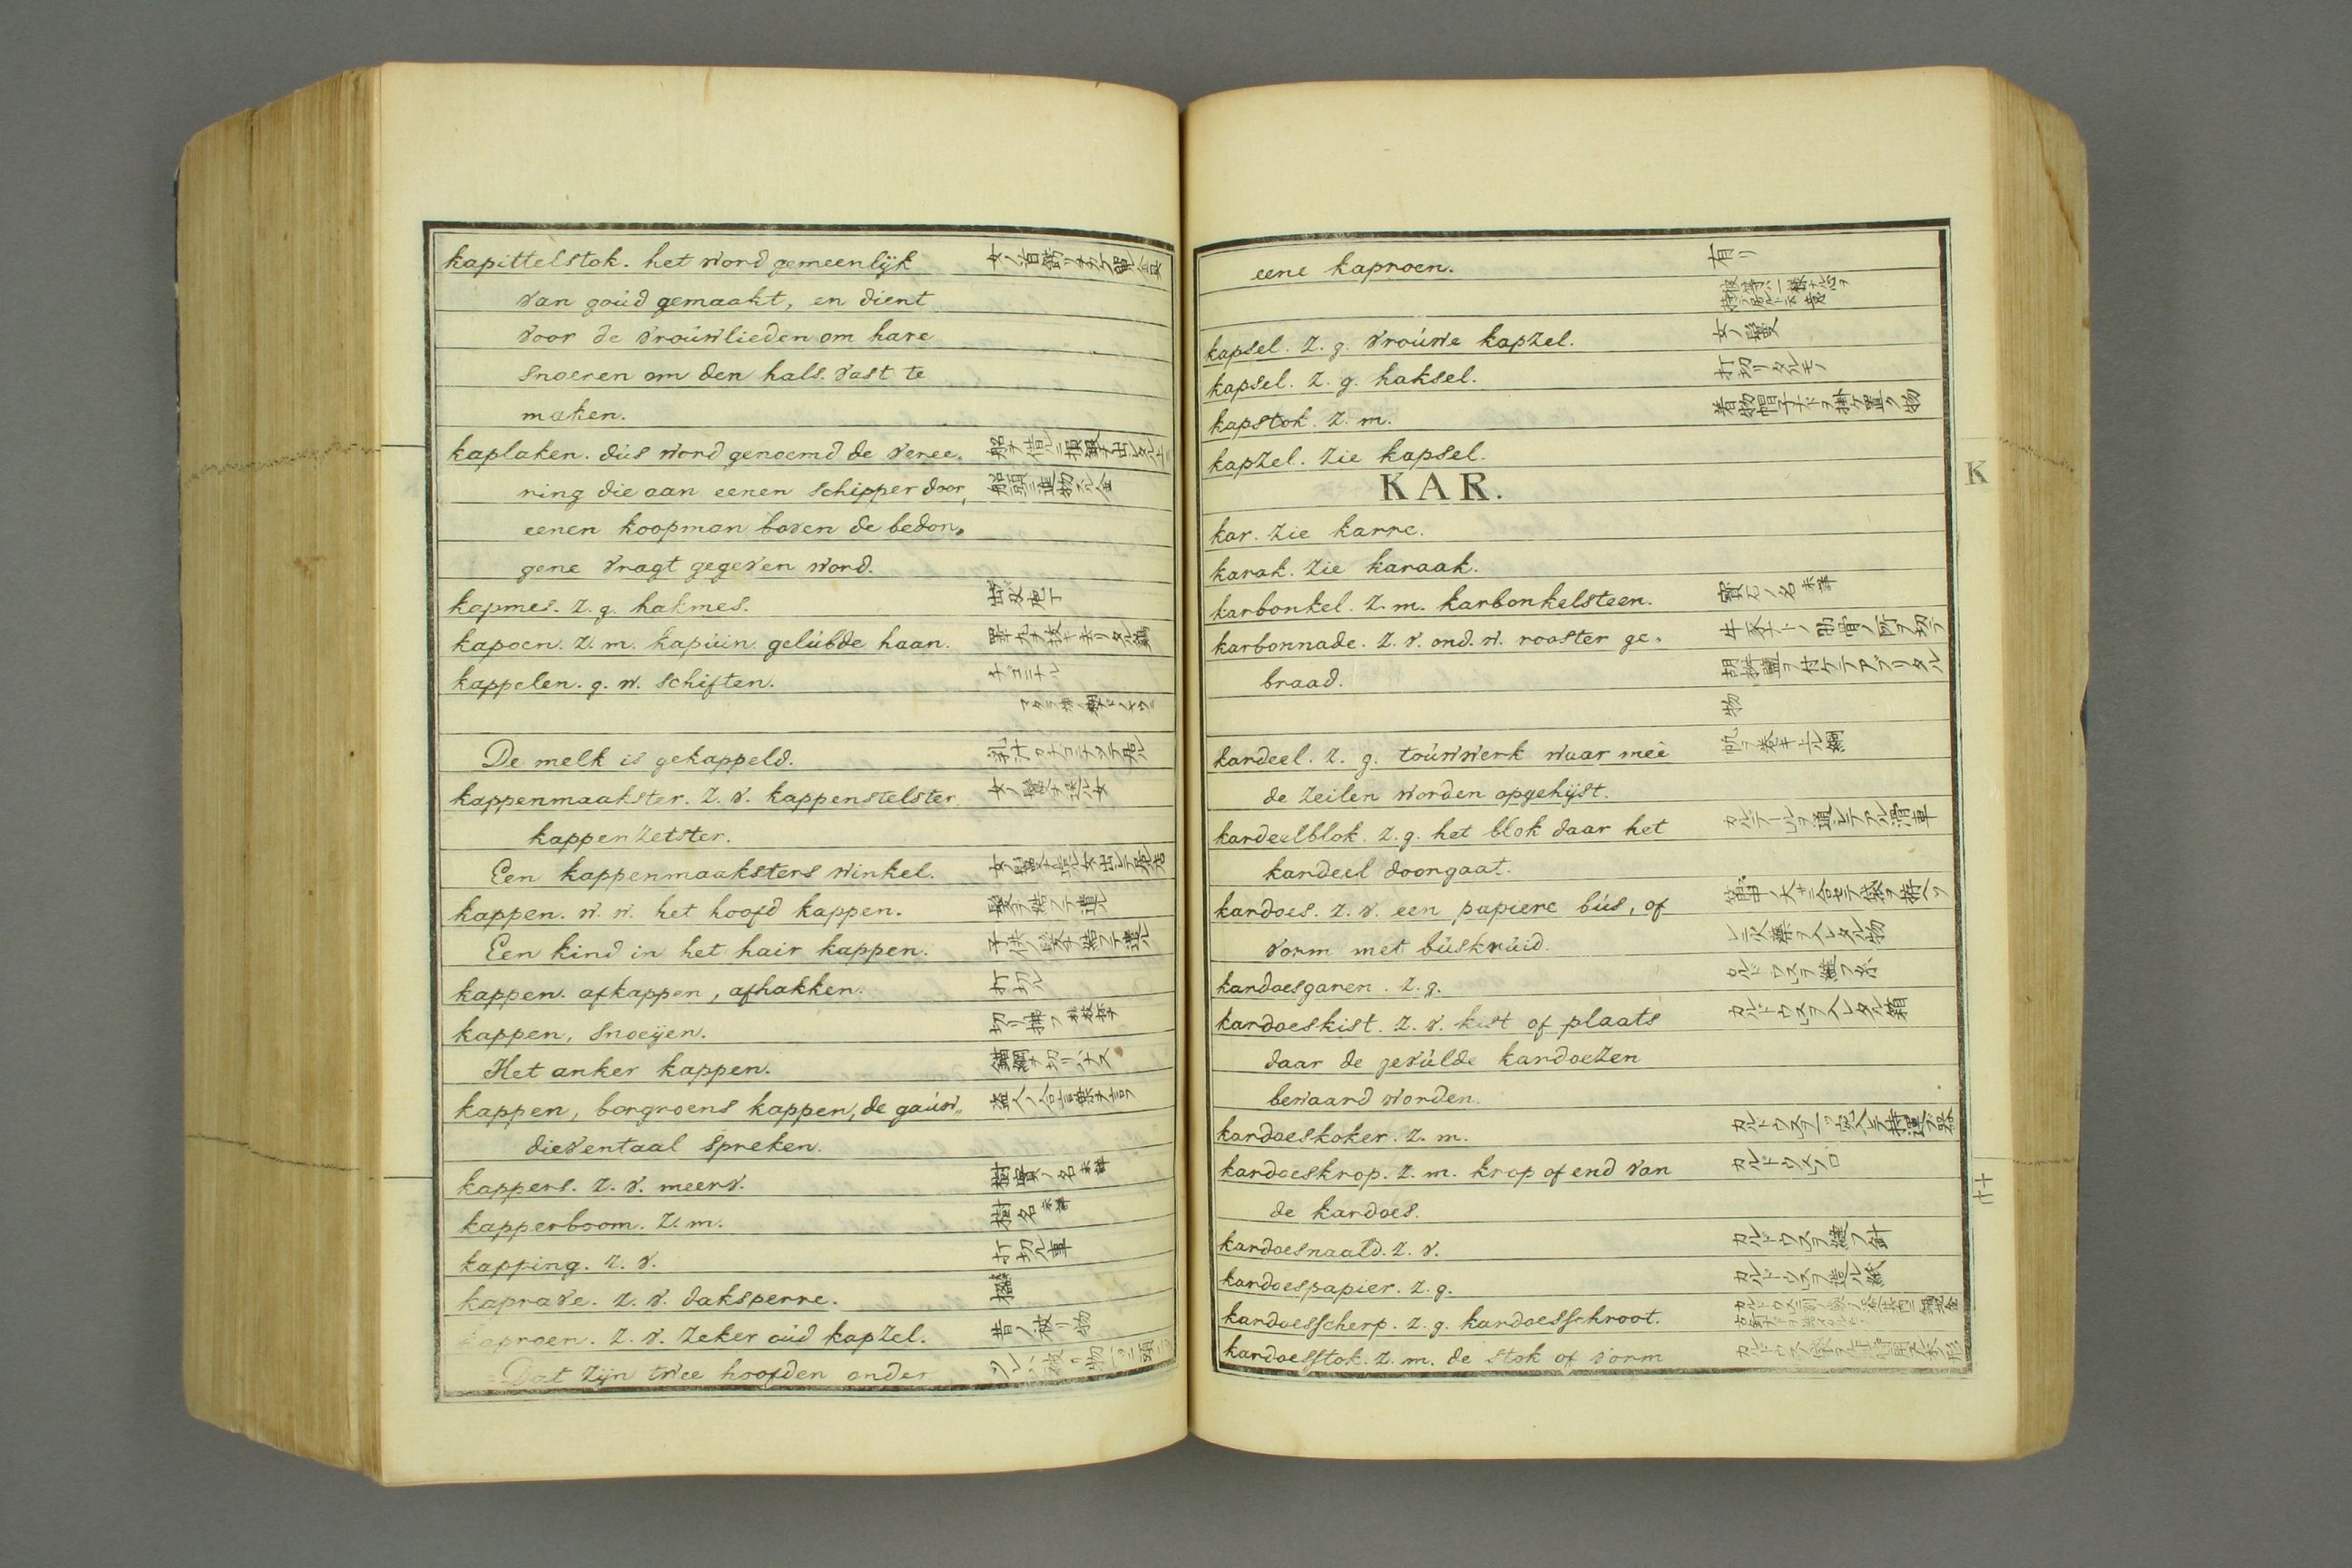 kapittelstok. het word gemeenlijk 女ノ首飾リヲカクル留金具
van goúd gemaakt, en dient
voor de vroúwlieden om hare
snoeren om den hals. vast te
maken.
kaplaken. dús word genoemd de veree,
ning die aan eenen schipper door, 船頭ニ進物スル金
eenen koopman boven de bedon,
gene vragt gegeven word.
kapmes. z. g. hakmes. 出刃庖丁
kapoen. z. m. kapúin. gelúbde haan. 睪丸ヲ抜キ去リタル鶏
kappelen. g. w. schiften.
De melk is gekappeld.
kappenmaakster. z. v. kappenstelster, 女ノ鬘ヲ造ル女
kappenzetster.
Een kappenmaaksters winkel.
kappen. w. w. het hoofd kappen. 髪ヲ結フテ遣ル
Een kind in het hair kappen. 子供ノ髪ヲ結フテ遣ル
kappen. afkappen, afhakken. 打切ル
kappen, snoeyen. 切リ拂フ
Het anker kappen. 錨綱ヲ切リハナス
kappen, borgroens kappen, de gaúw,, 盗人ノ合言葉ヲ言フ
dieventaal spreken.
kappers. z. v. meerv. 樹實ノ名未詳
kapperboom. z. m. 樹名未詳
kapping. z. v. 打切ル事
kaprave. z. v. daksperre.
kaproen. z. v. zeker oúd kapzel. 昔ノ被リ物
Dat zijn twee hoofden onder
eene kaproen. 有リ
kapsel. z. g. vroúwe kapzel. 女ノ鬘
kapsel. z. g. haksel. 打切リタルモノ
kapstok. z. m. 着物帽子ナドヲ掛ケ置ク物
kapzel. zie kapsel.
KAR.
K
kar. zie karre.
karak. zie karaak.
karbonkel. z. m. karbonkelsteen. 寳石ノ名未詳
karbonnade. z. v. ond. w. rooster ge,
braad. 胡椒塩ヲ付ケテアブリタル
物
kardeel. z. g. toúwwerk waar meê 帆ヲ巻キ上ル綱
de zeilen worden opgehijst.
kardeelblok. z. g. het blok daar het カルデールヲ通シテアル滑車
kardeel doorgaat.
kardoes. z. v. een papiere bús, of
vorm met búskrúid. レニ火薬ヲ入レタル物
kardoesgaren. z. g. カルドウスヲ縫フ糸
kardoeskist. z. v. kist of plaats カルドウスヲ入レタル箱
daar de gevúlde kardoezen
bewaard worden.
kardoeskoker. z. m.
kardoeskrop. z. m. krop of end van カルドウスノ口
de kardoes.
kardoesnaald. z. v. カルドウスヲ縫フ針
kardoespapier. z. g. カルドウスヲ造ル紙
kardoesscherp. z. g. kardoesschroot.
kardoesstok. z. m. de stok of vorm